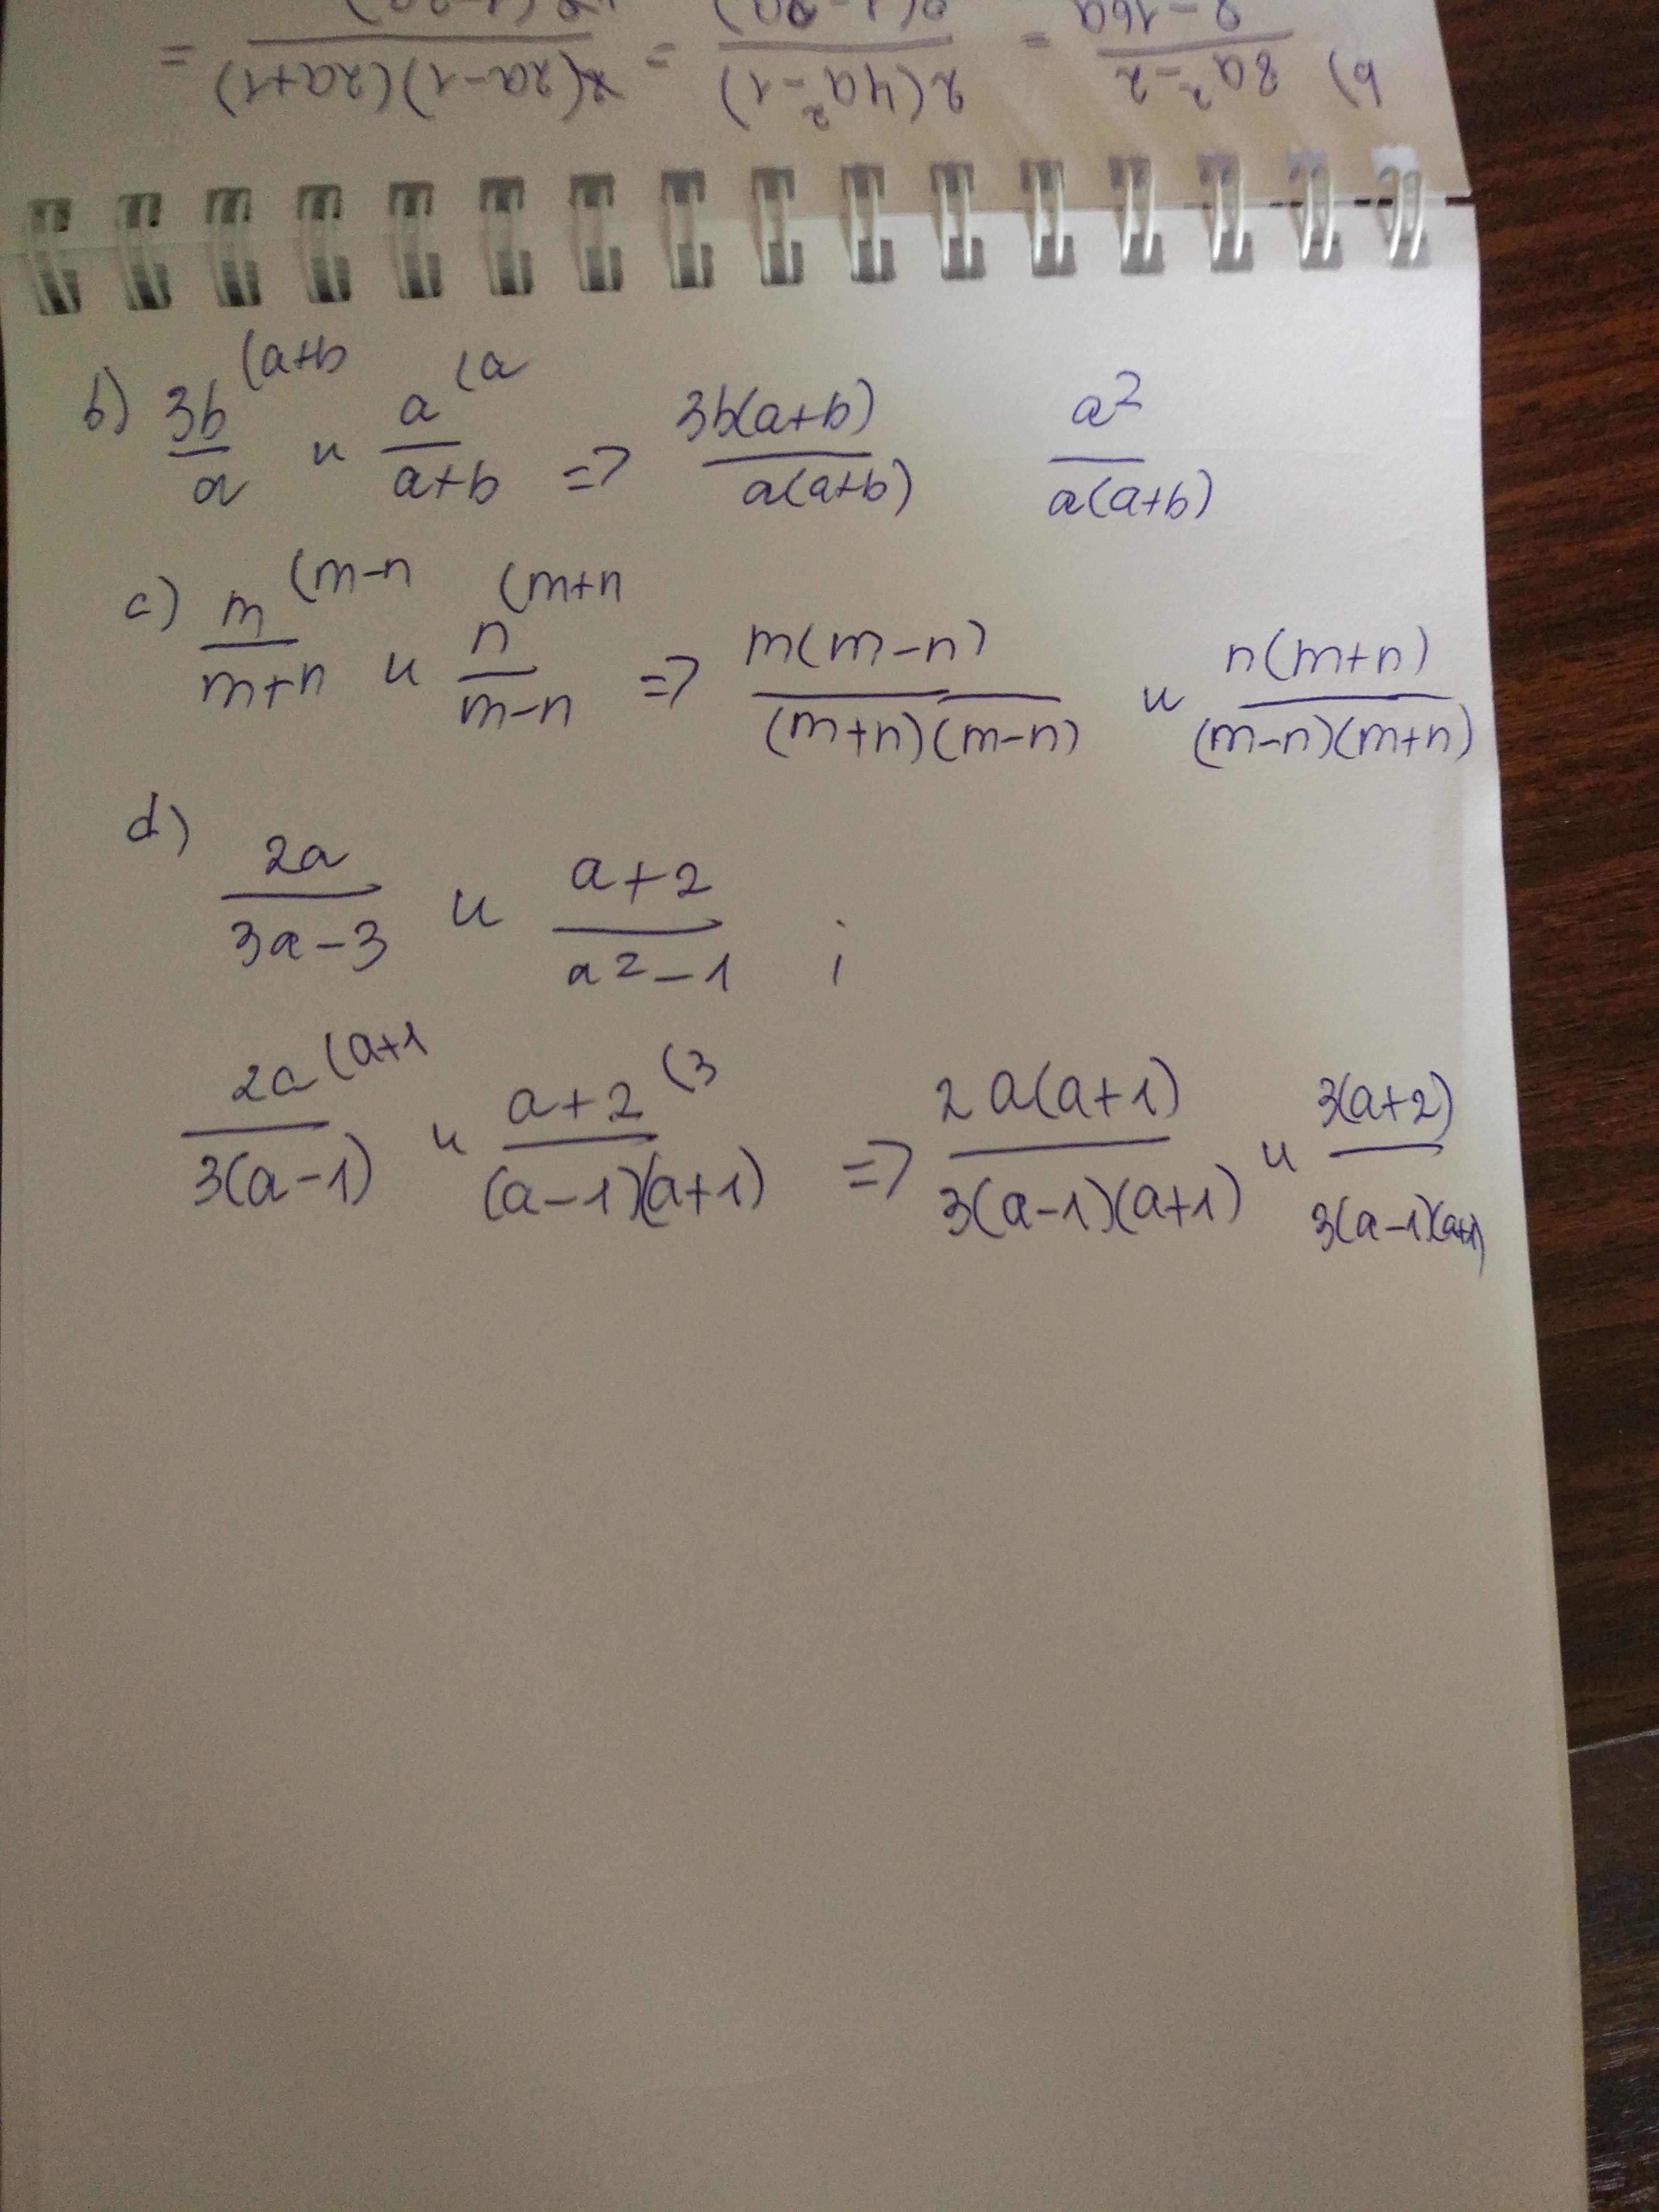 b) (8a²-2)/(8-16a) = 2(4a²-1)/ = 2(2a-1)(2a+1)/ =
b) 3b/a (a+b и a/(a+b) (a => 3b(a+b)/a(a+b) a²/a(a+b)
c) m/(m+n) (m-n и n/(m-n) (m+n => m(m-n)/(m+n)(m-n) и n(m+n)/(m-n)(m+n)
d) 2a/(3a-3) и (a+2)/(a²-1) ;
2a/3(a-1) (a+1 и (a+2)/(a-1)(a+1) (3 => 2a(a+1)/3(a-1)(a+1) и 3(a+2)/3(a-1)(a+1)